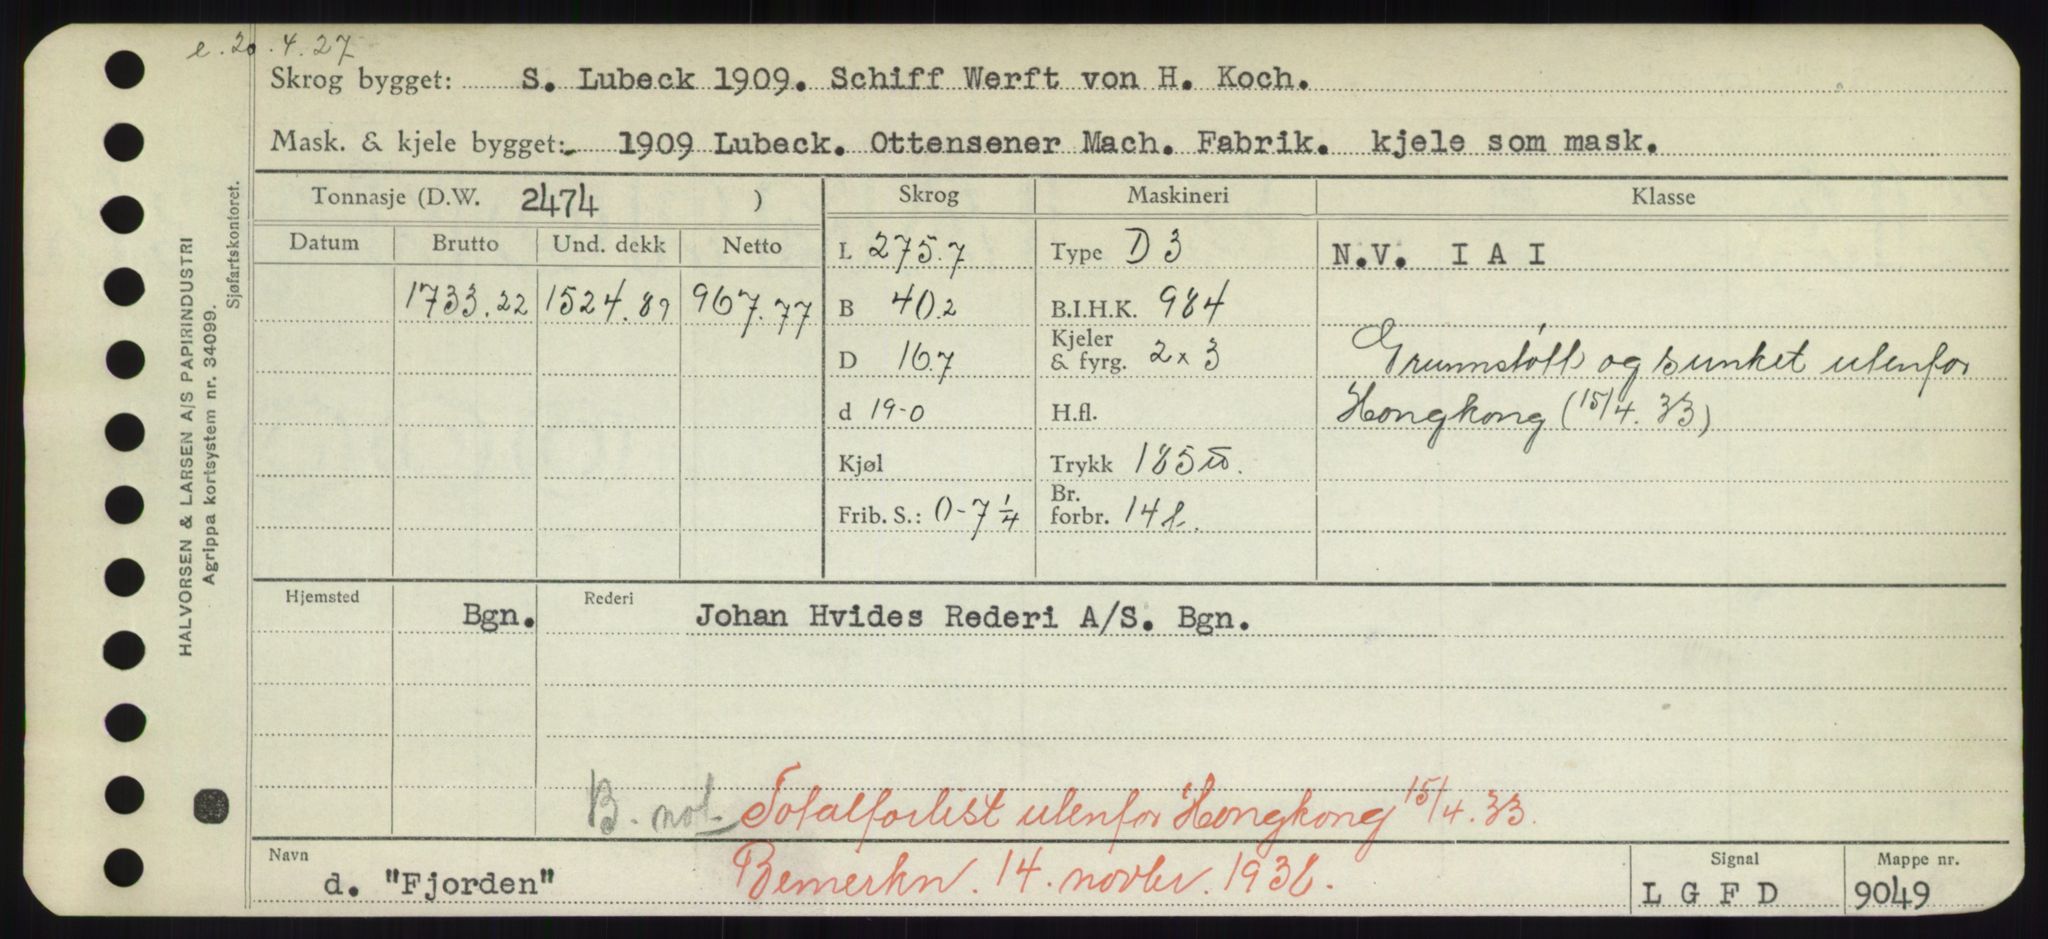 e. 20.4.27
Skrog bygget: S. Lubeck 1909. Schiff Werft von H. Koch.
Mask. & kjele bygget: 1909 Lubeck. Ottensener Mach. Fabrik. kjele som mask.
Tonnasje (D.W. 2474 ) Skrog Maskineri Klasse
Datum Brutto Und. dekk Netto L 275.7 Type D 3 N.V. I A I
1733.22 1524.89 967.77 B 40.2 B.I.H.K. 984
D 16.7 Kjeler & fyrg. 2 x 3 Grunnstött og sunket utenfor
d 19-0 H.fl. Hongkong (15/4. 33)
Kjøl Trykk 185 ℔.
Frib. S.: 0-7 1/4 Br. forbr. 14 t.
Hjemsted Bgn. Rederi Johan Hvides Rederi A/S. Bgn.
B. not. Totalforlist utenfor Hongkong 15/4. 33.
Bemerkn. 14. novbr. 1936.
Navn d. "Fjorden" Signal L G F D Mappe nr. 9049
HALVORSEN & LARSEN A/S PAPIRINDUSTRI
Agrippa kortsystem nr. 34099.
Sjøfartskontoret.